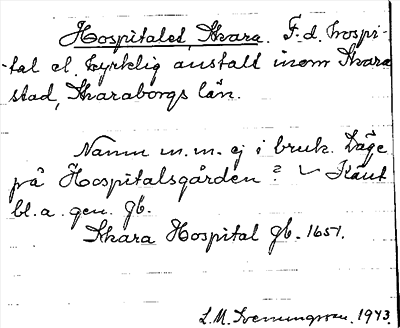 Hospitalet, Skara. F.d. hospi-
tal el. kyrklig anstalt inom Skara
stad, Skaraborgs län.
Namn m.m. ej i bruk. Läge
på Hospitalsgården? Känt
bl.a. gen. gb.
Skara Hospital gb. 1651.
L.M. Svenungsson. 1943.